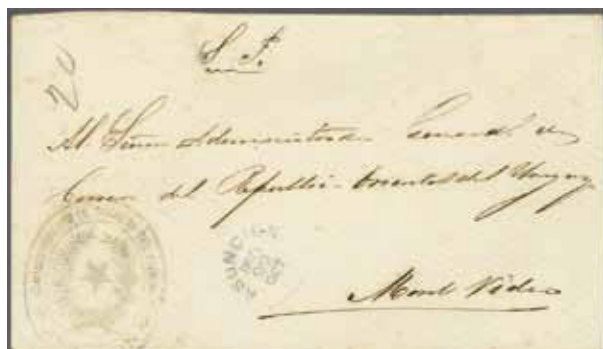 20
S. P.
Al Señor Administrador General de
Correos del Republi. Oriental del Uruguay
ASUNCION
Mont Video